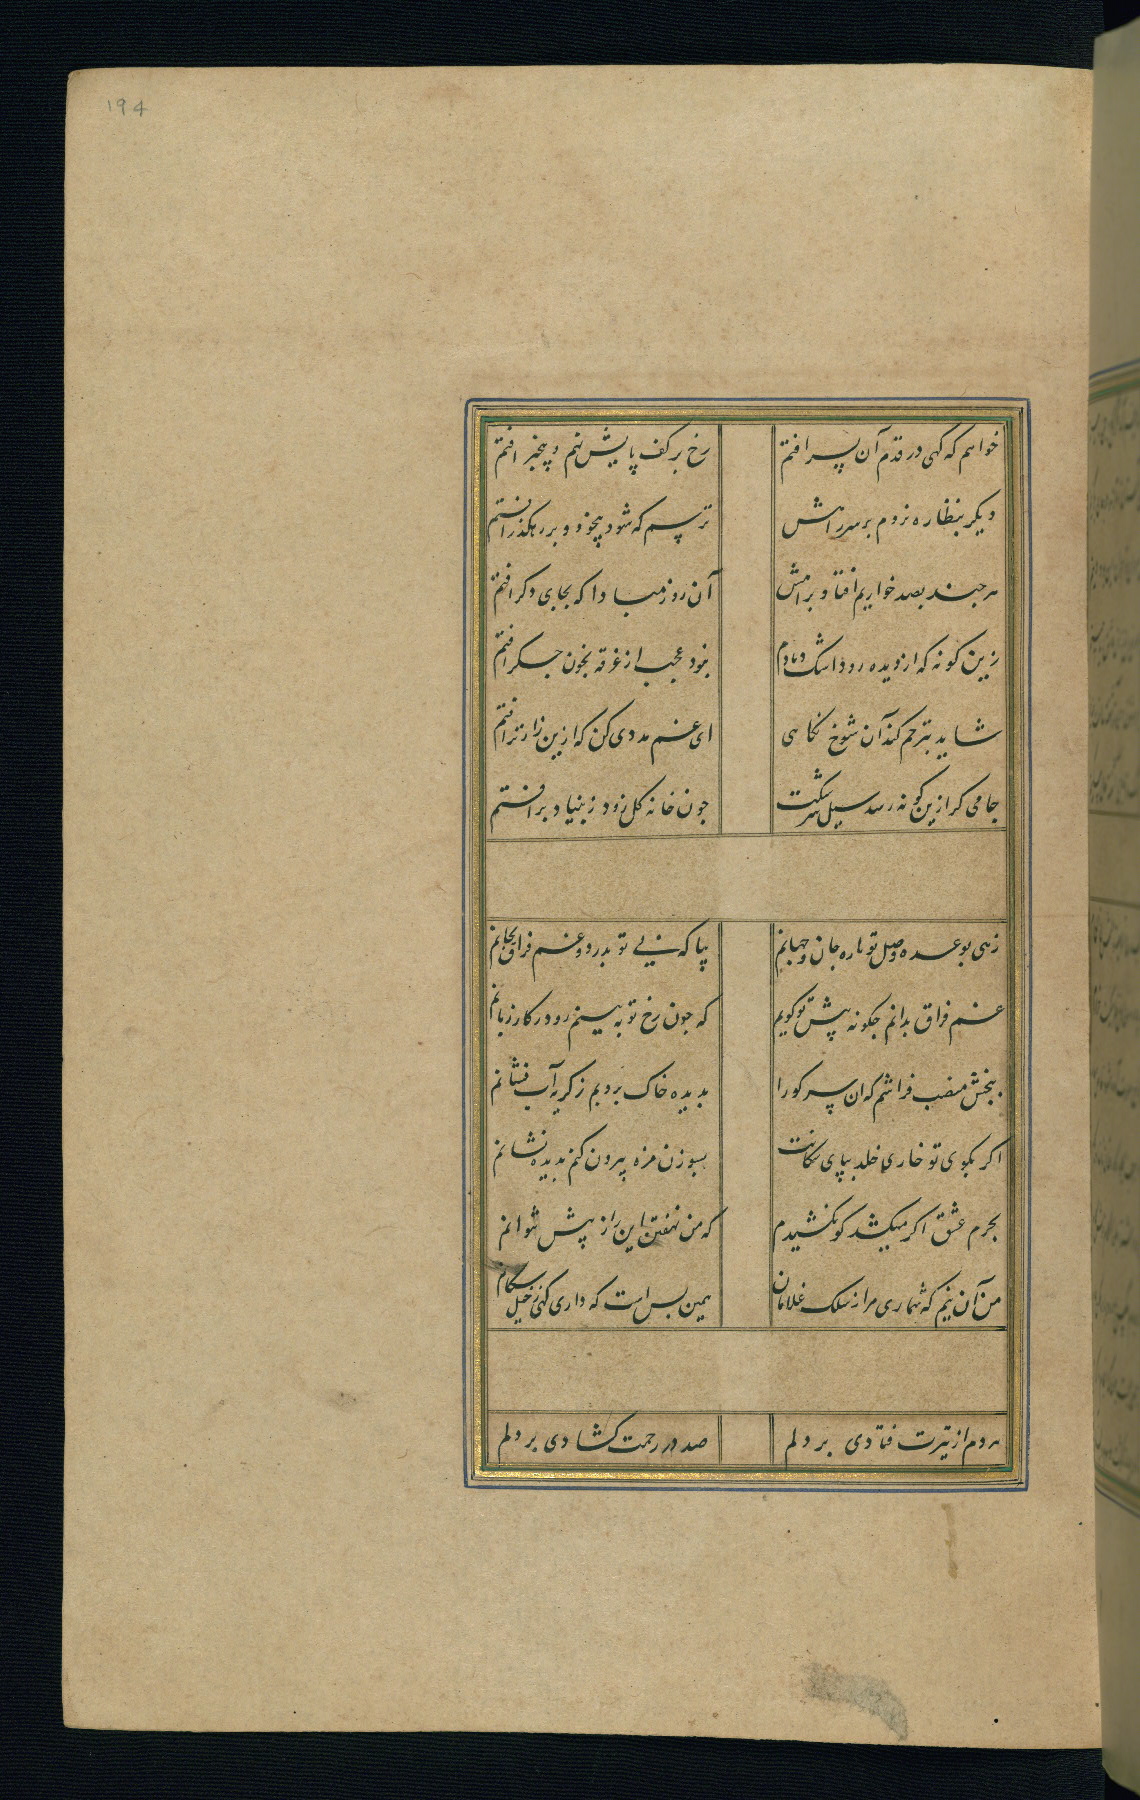 ۱۹۴
خواهم که کهی در قدم آن پسر افتم رخ بر کف پایش نهم و بیخبر افتم
دیکر بنظاره نروم بر سر راهش ترسم که شود بیخود و بر رهکذر افتم
هر چند بصد خواریم افتاد براهش آن روز مبادا که بجای دکر افتم
زین کونه که از دیده رود اشک دمادم نبود عجب ار غرقه بخون جکر افتم
شاید بترحم کند آن شوخ نکاهی ای غم مددی کن که ازین زارتر افتم
جامی کر ازین کونه رسد سیل سرشکت چون خانه کل زود ز بنیاد بر افتم
زهی بوعده وصل تو تازه جان و جهانم بیا که بی تو بدرد و غم فراق بجانم
غم فراق بدانم چکونه پیش تو کویم که چون رخ تو ببینم رود ز کار زبانم
ببخش منصب فراشیم که آن سر کو را بدیده خاک بروبم ز کریه آب فشانم
اکر بکوی تو خاری خلد بپای سکانت بسوزن مژه بیرون کنم بدیده نشانم
بجرم عشق اکر میکشد کو بکشیدم که من نهفتن این راز بیش نتوانم
من آن نیم که شماری مرا ز سلک غلامان همین بس است که داری کهی ز خیل سکانم
هر دم از تیرت فتادی بر دلم صد در رحمت کشادی بر دلم